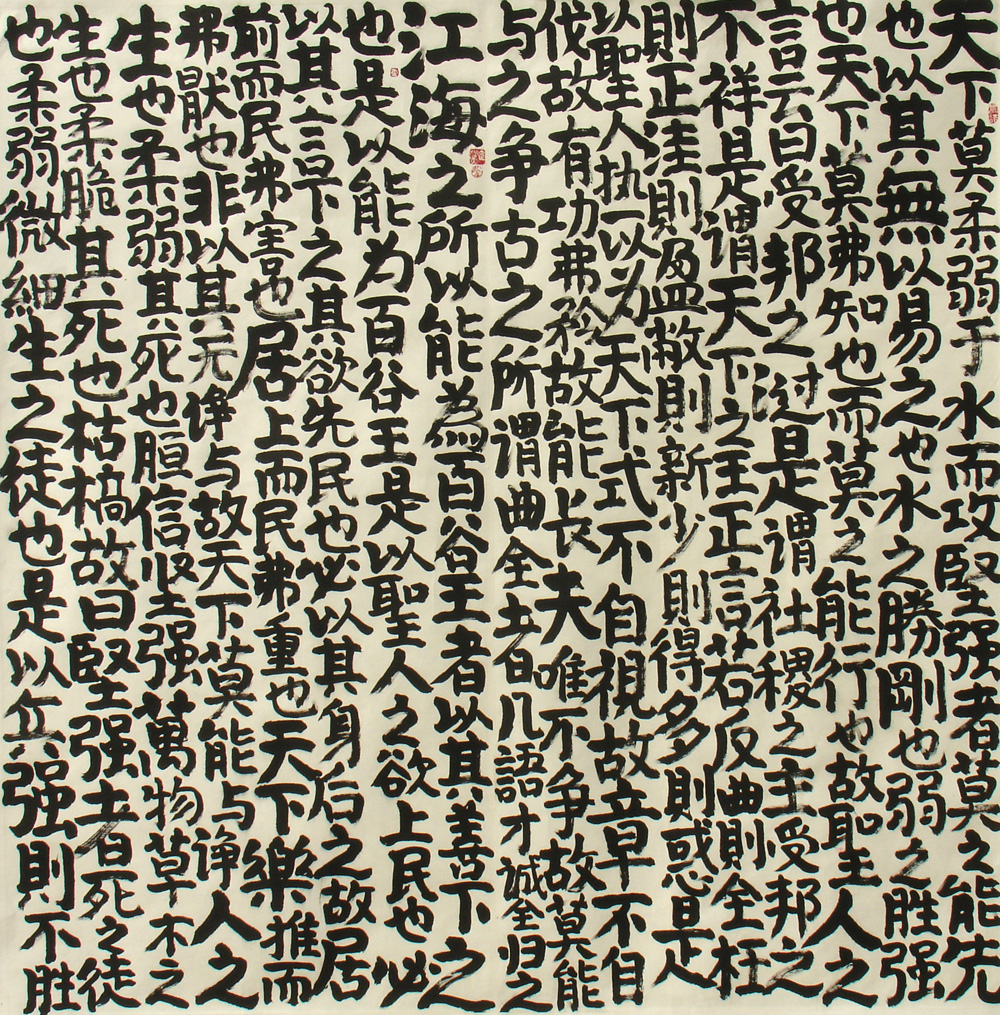 天下莫柔弱于水而攻堅强者莫之能先
也以其無以易之也水之勝剛也弱之胜强
也天下莫弗知也而莫之能行也故聖人之
言云曰受邦之是謂社稷之主受邦之
不祥是謂天下之主正言若反曲則全枉
則正洼則盈敝則新少則得多則惑是
以聖人执一以为天下式不自視故章不自
伐故有功弗矜故能长夫唯不争故莫能
与之争古之所謂曲全者几語才誠全归之
江海之所以能為百谷王者以其善下之
也是以能为百谷王是以聖人之欲上民也必
以其言下之其欲先民也必以其身后之故居
前而民弗害也居上而民弗重也天下樂推而
弗猒也非以其无諍与故天下莫能与諍人之
生也柔弱其死也信坚强萬物草木之
生也柔脆其死也枯槁故曰堅强者死之徒
也柔弱微細生之徒也是以兵强則不胜